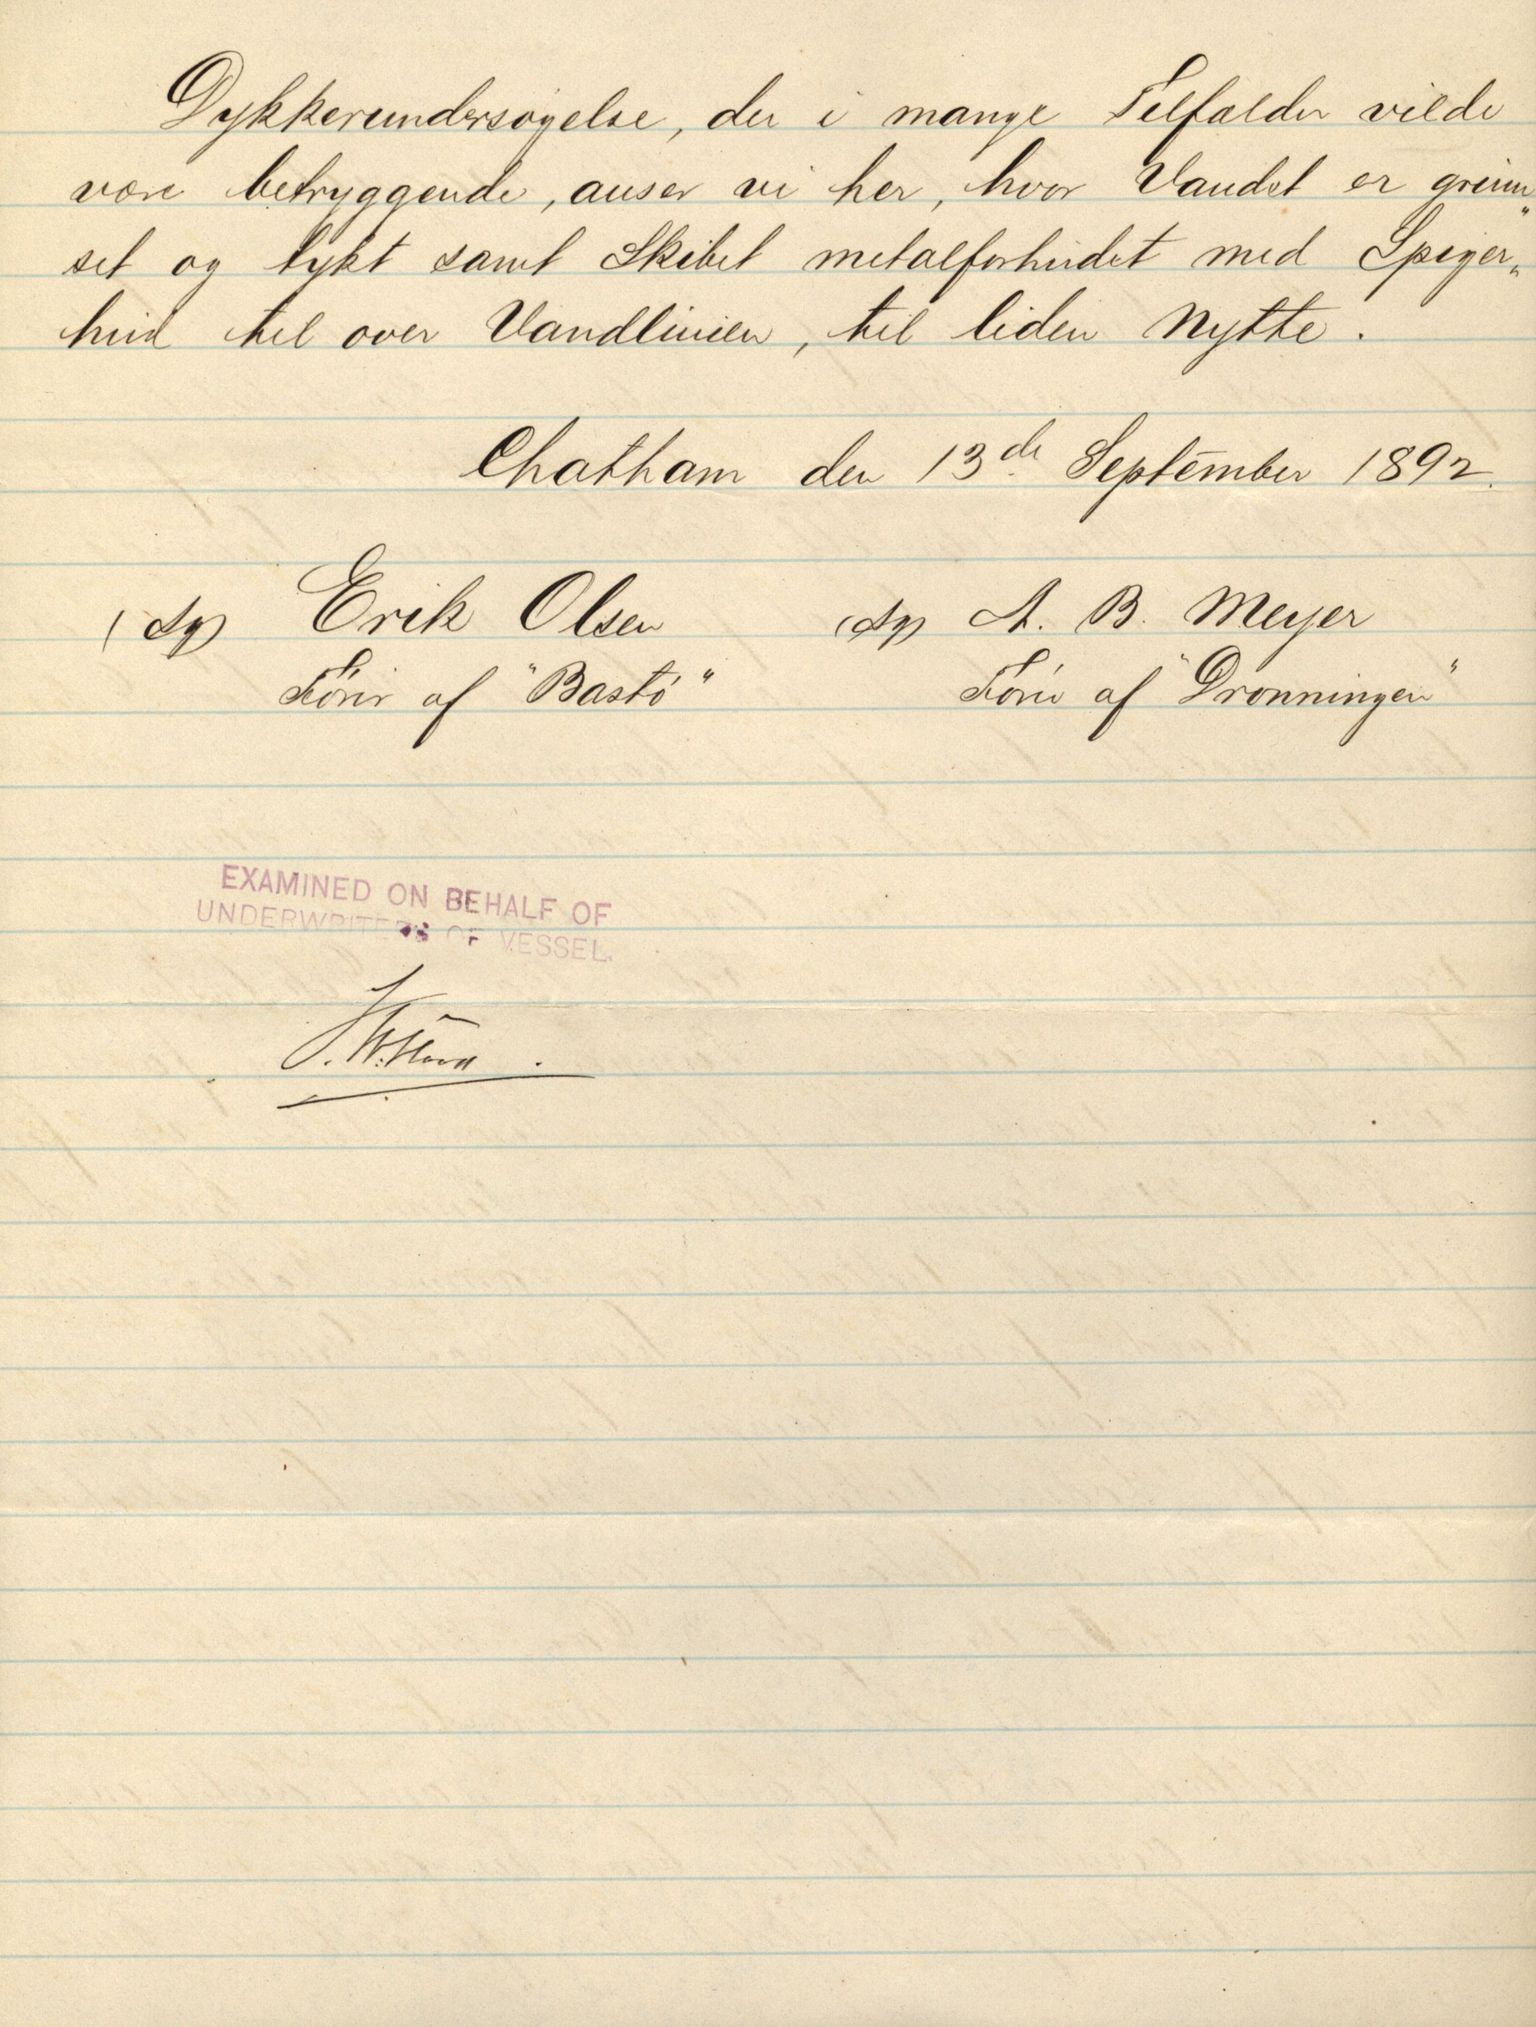 Dykkerundersøgelse, der i mange Tilfælder vilde
være betryggende, anser vi her, hvor Vandet er grum„
set og tykt samt Skibet metalforhudet med Spiger„
hud til over Vandlinien, til liden Nytte.
Chatham den 13de September 1892.
(Sg) Erik Olsen (Sg) A. B. Meyer
Fører af "Bastø" Fører af "Dronningen"
EXAMINED ON BEHALF OF
UNDERWRITERS OF VESSEL.